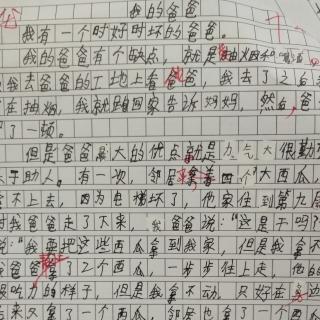 我的爸爸
我有一个时好时坏的爸爸。
我的爸爸有个缺点,就是抽烟和
我去爸爸的工地上看爸爸,我去了之后
在抽烟,我就跑回家告诉妈妈,然后,爸
了一顿。
但是爸爸最大的优点就是力气大很勤
乐于助人。有一次,邻居拿着四个大西瓜,
拿不上去,因为电梯坏了,他家住到第九层
时我爸爸走了下来,我爸爸说:“这是干吗?
说:“我要把这些西瓜拿到我家,但是我拿不
我爸爸拿了2个西瓜,一步步往上走,他的
很吃力的样子,但是我拿不动,只好在旁边
后来又拿了一个西瓜,邻居也拿了一个西